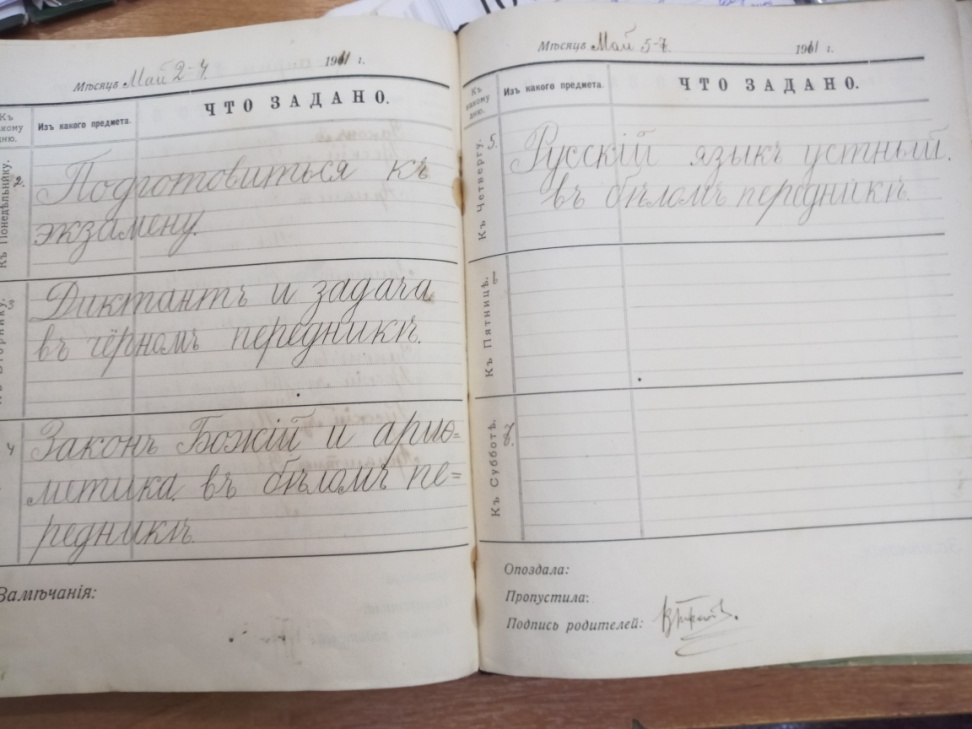 Мѣсяцъ Май 2-4. 1911 г.
Къ какому дню.
Изъ какого предмета.
ЧТО ЗАДАНО.
Къ Понедѣльнику.
Подготовиться къ
экзамену.
Къ Вторнику.
3
Диктантъ и задача
въ чёрномъ передникѣ.
4
Законъ Божій и ариѳ=
метика въ бѣломъ пе=
редникѣ.
Замѣчанія:
Мѣсяцъ Май 5-7. 1911 г.
Къ какому дню.
Изъ какого предмета.
ЧТО ЗАДАНО.
Къ Четвергу.
5.
Русскій языкъ устный.
въ бѣломъ передникѣ.
Къ Пятницѣ.
Къ Субботѣ.
Опоздала:
Пропустила:
Подпись родителей: